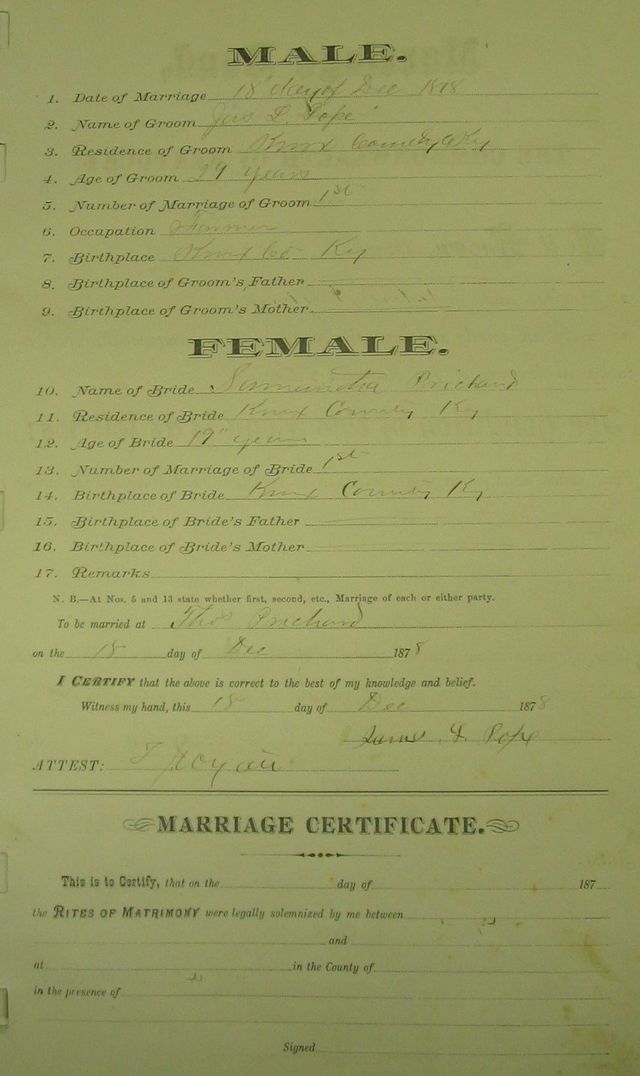 MALE.
1. Date of Marriage 18" day of Dec 1878
2. Name of Groom Jas D. Pope
3. Residence of Groom Knox County Ky
4. Age of Groom 29 years
5. Number of Marriage of Groom 1st
6. Occupation Farmer
7. Birthplace Knox Co Ky
8. Birthplace of Groom's Father
9. Birthplace of Groom's Mother.
FEMALE.
10. Name of Bride Prichard
11. Residence of Bride Knox County Ky
12. Age of Bride 19" years
13. Number of Marriage of Bride 1st
14. Birthplace of Bride Knox County Ky
15. Birthplace of Bride's Father
16. Birthplace of Bride's Mother
17. Remarks
N. B.—At Nos. 5 and 13 state whether first, second, etc., Marriage of each or either party.
To be married at Thos Prichard
on the 18 day of Dec 1878
I CERTIFY that the above is correct to the best of my knowledge and belief.
Witness my hand, this 18 day of Dec 1878
James D. Pope
ATTEST:
MARRIAGE CERTIFICATE.
This is to Certify, that on the day of 187
the RITES OF MATRIMONY were legally solemnized by me between
and
at in the County of
in the presence of
Signed